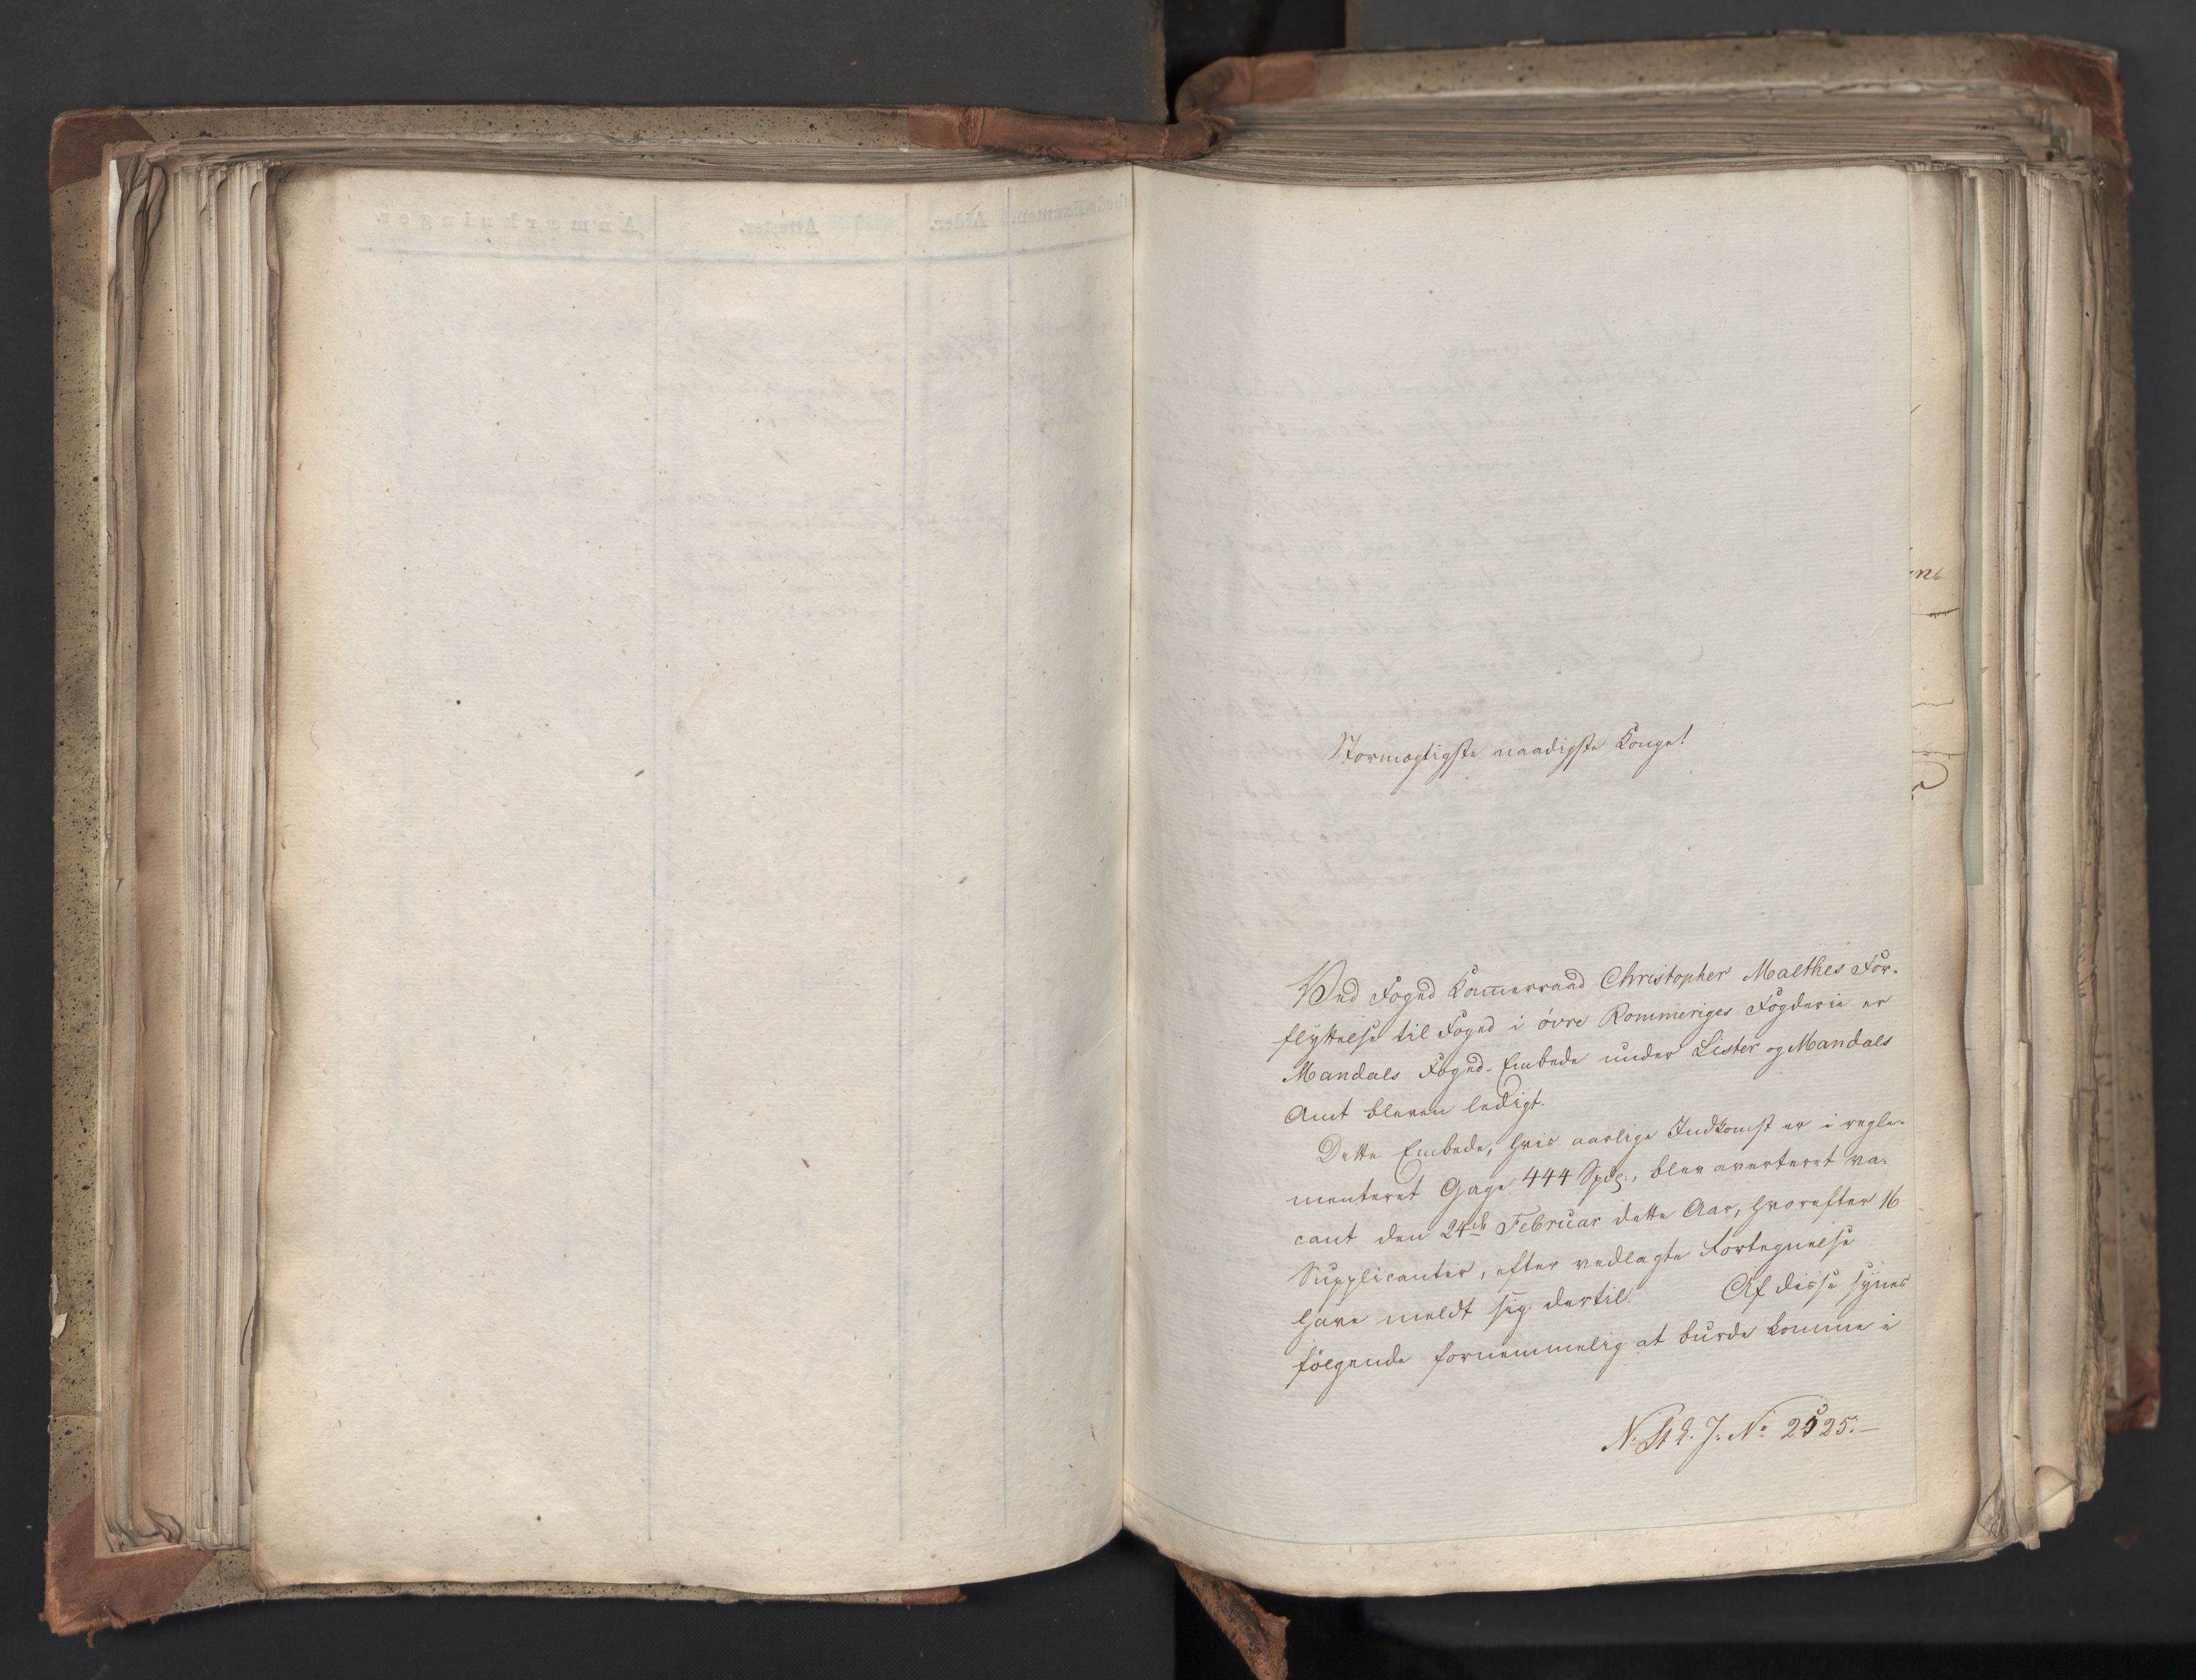 Stormægtigste naadigste Konge!
Ved Foged Kammerraad Christopher Malthes For-
flyttelse til Foged i øvre Rommeriges Fogderie er
Mandals Foged-Embede under Lister og Mandals
Amt bleven ledigt.
Dette Embede, hvis aarlige Indkomst er i regle-
menteret Gage 444 Spd., blev averteret va-
cant den 24de Februar dette Aar, hvorefter 16
Supplicanter, efter vedlagte Fortegnelse
have meldt sig dertil. Af disse synes
følgende fornemmelig at burde komme i